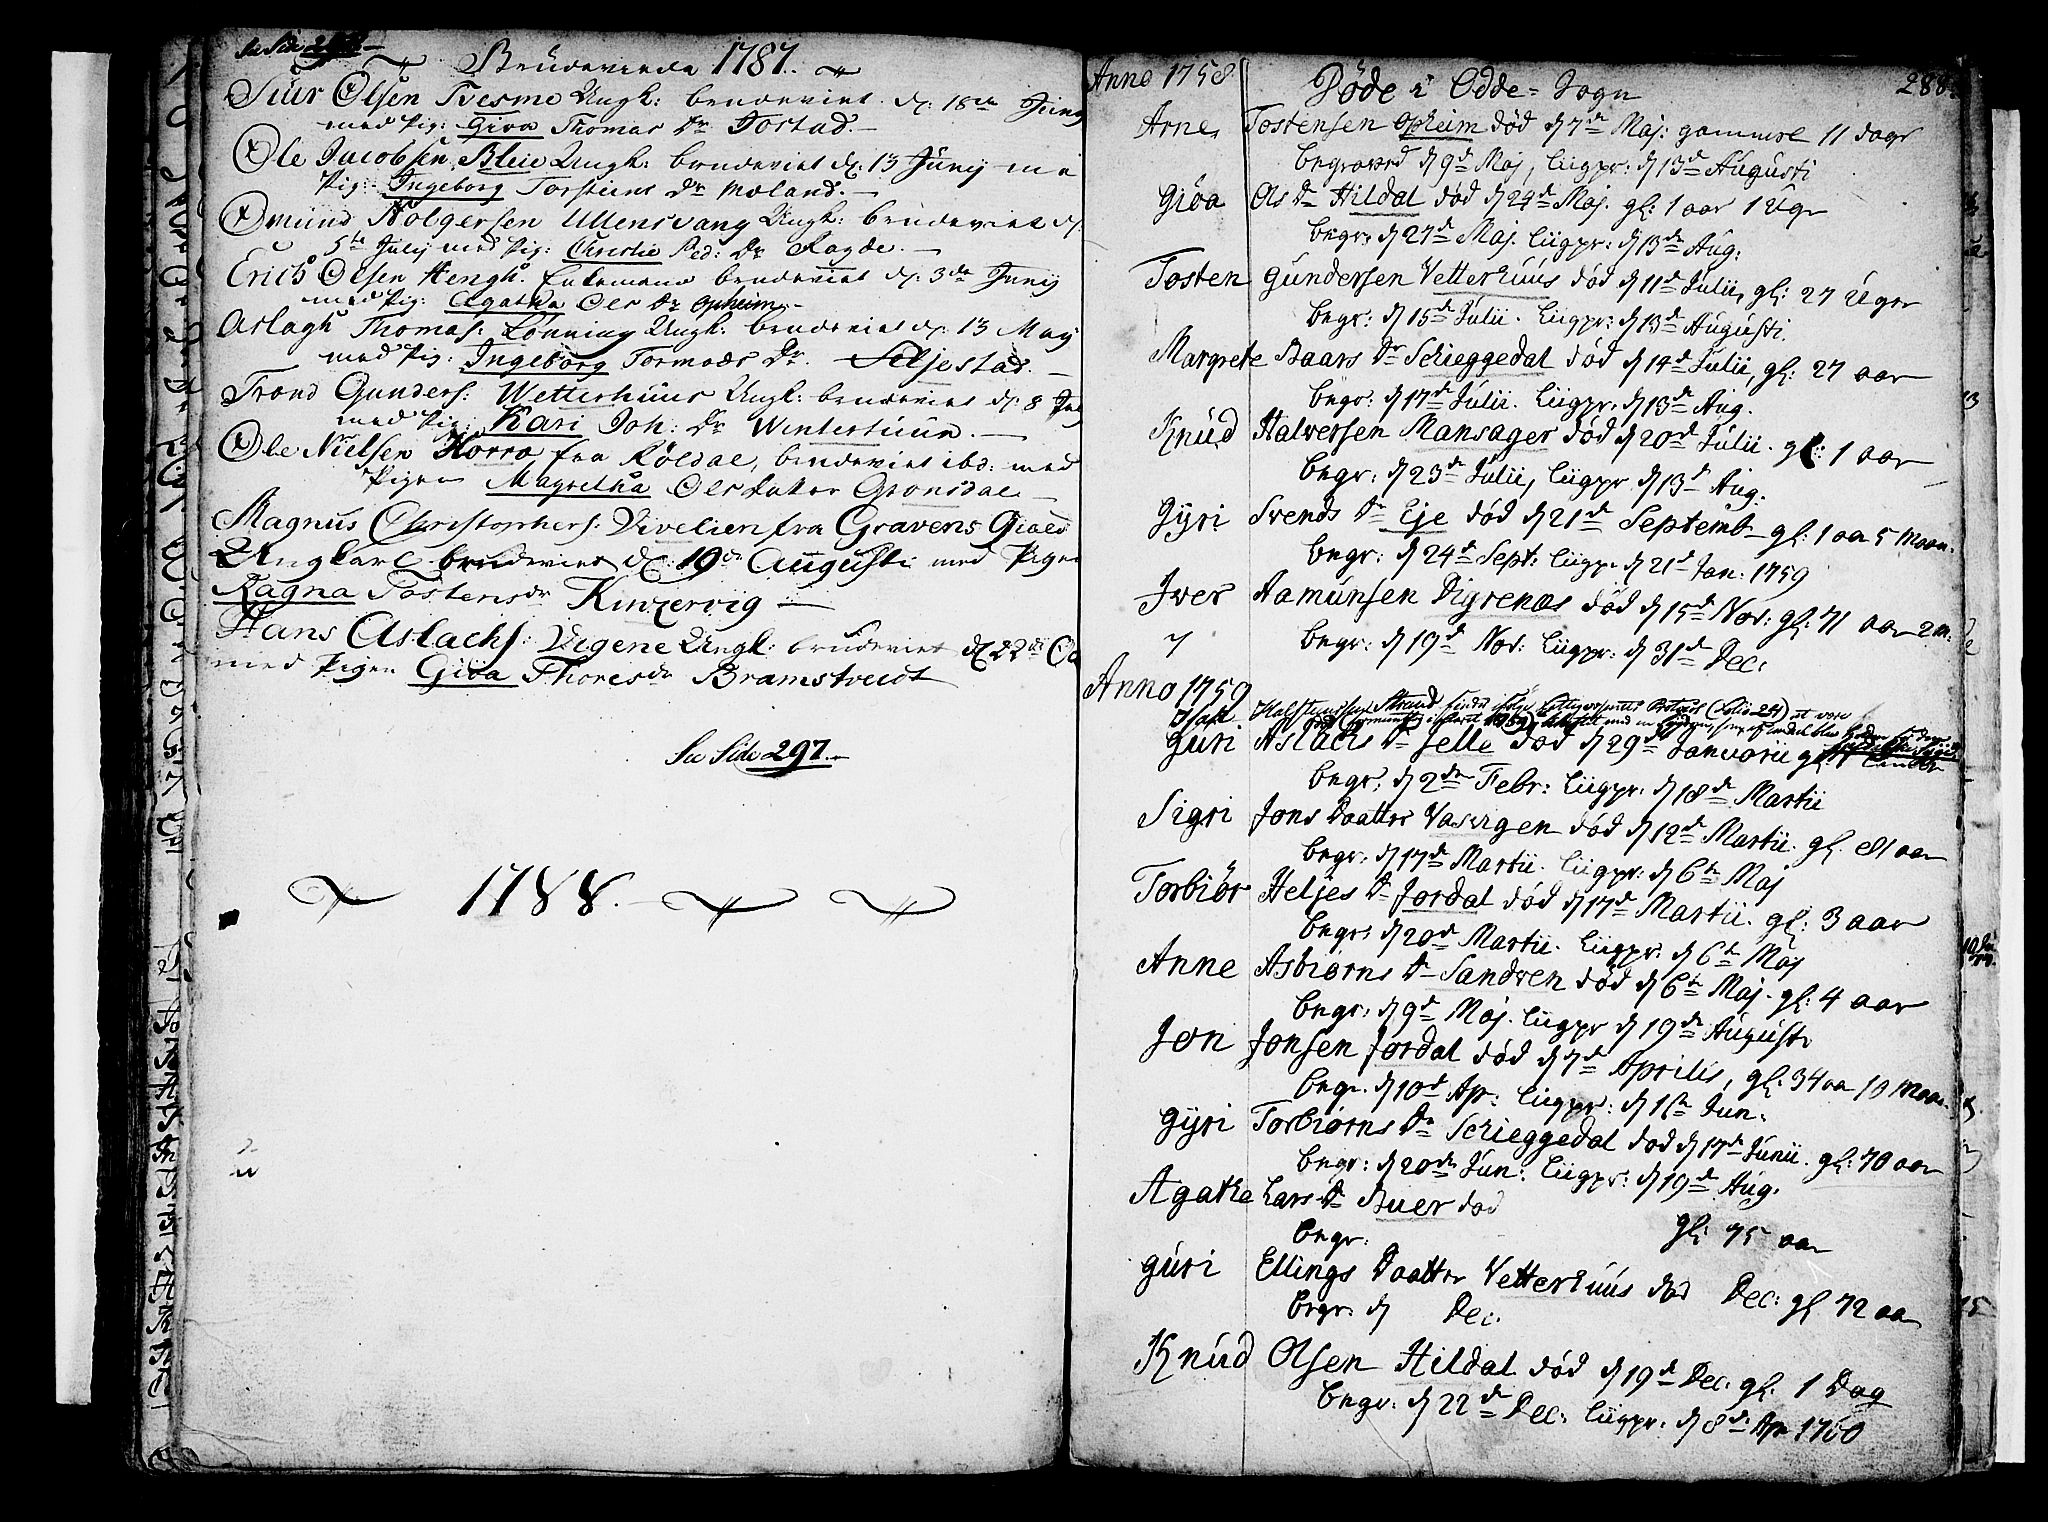 Se Side 298
Brudeviede 1787.
Siur Olsen Tvesme Ungk: brudeviet d: 18de Junij
med Pig: Giøa Thomas Dr Tostad.
Ole Jacobsen Bleie Ungk: brudeviet d: 13 Junij me
Pig: Ingeborg Torstens Dr Moland.
Omund Holgersen Ullensvang Ungk: brudeviet d:
5te Julij med Pig: Christie Ped: Dr Ragde.
Erich Olsen Hengh. Enkemand brudeviet d: 3de Junij
med Pig: Agatha Ols Dr Opheim
Aslagh Thomas: Lønning Ungk: brudeviet d: 13 Maij
med Pig: Ingeborg Tormods Dr. Seljestad.
Trond Gunders: Wetterhuus Ungk: brudeviet d: 8 Jul
med Pig: Kari Joh: Dr Winterhuun.
Ole Nielsen Horra fra Røldal, brudeviet ibd: med
Pigen Magretha Ols Datter Gronsdal
Magnus Christophers: Vivelien fra Gravens Giæld
Ungkarl brudeviet d: 19de Augusti med Pigen
Ragna Tostensdr Kinzervig
Hans Aslachs: Digene Ungk: brudeviet d 22de Oc
med Pigen Giøa Thoresdr Bramstvedt
Se Side 297.
1788.
Anno 1758 Døde i Odde Sogn 288
Arne Tostensen Opheim død d 7de Maj: gammel 11 dage
begraved d 9de Maj, Liigpr: d 13de Augusti
Giøa Ols Dr Hildal død d 24de Maj. gl: 1 aar 1 Uge
begr: d 27de Maj. Liigpr: d 13de Aug:
Tosten Gundersen Vetterhuus død d 11de Julii, gl: 27 Uger
begr: d 15de Julii. Liigpr: d 13de Augusti.
Margrete Baars Dr Schieggedal død d 14de Julii, gl: 27 aar
begr: d 17de Julii. Liigpr: d 13de Aug.
Knud Halversen Mansager død d 20de Julii. gl: 1 aar
begr: d 23de Julii, Liigpr d 13de Aug.
Gyri Svends Dr Eje død d 21de Septemb gl: 1 aa 5 Maan.
begr: d 24de Sept: Liigpr d 21de Jan: 1759
Iver Aamunsen Digrenæs død d 15de Nov: gl: 71 aar 2 M:
7 begr: d 19de Nov: Liigpr: d 31de Dec:
Anno 1759
Guri Aslachs Dr Jelle død d 29de Januarii gl:
begr: d 2den Febr: Liigpr: d 18de Martii
Sigri Jons Daatter Vasvigen død d 12de Martii. gl. 81 aar
begr: d 17de Martii. Liigpr: d 6te Maj
Torbiør Heljes Dr Jordal død d 17de Martii. gl: 3 aar
begr: d 20de Martii. Liigpr: d 6te Maj
Anne Asbiørns Dr Sandven død d 6te Maj. gl: 4 aar
begr: d 9de Maj. Liigpr d 19de Augusti
Jon Jonsen Jordal død d 7de Aprilis, gl: 34 aa 10 Maan.
begr. d 10de Ap: Liigpr: d 1ste Jun.
Gyri Torbiørns Dr Schieggedal død d 17de Junii. gl: 70 aar
begr: d 20de Jun: Liigpr: d 19de Aug.
Agathe Lars Dr Buer død
begr: gl: 75 aar
Guri Ellings Daatter Vetterhuus død Dec: gl 72 aa
begr: d Dec:
Knud Olsen Hildal død d 19de Dec: gl: 1 Dag
begr: d 22de Dec: Liigpr: d 8de Apr 1760